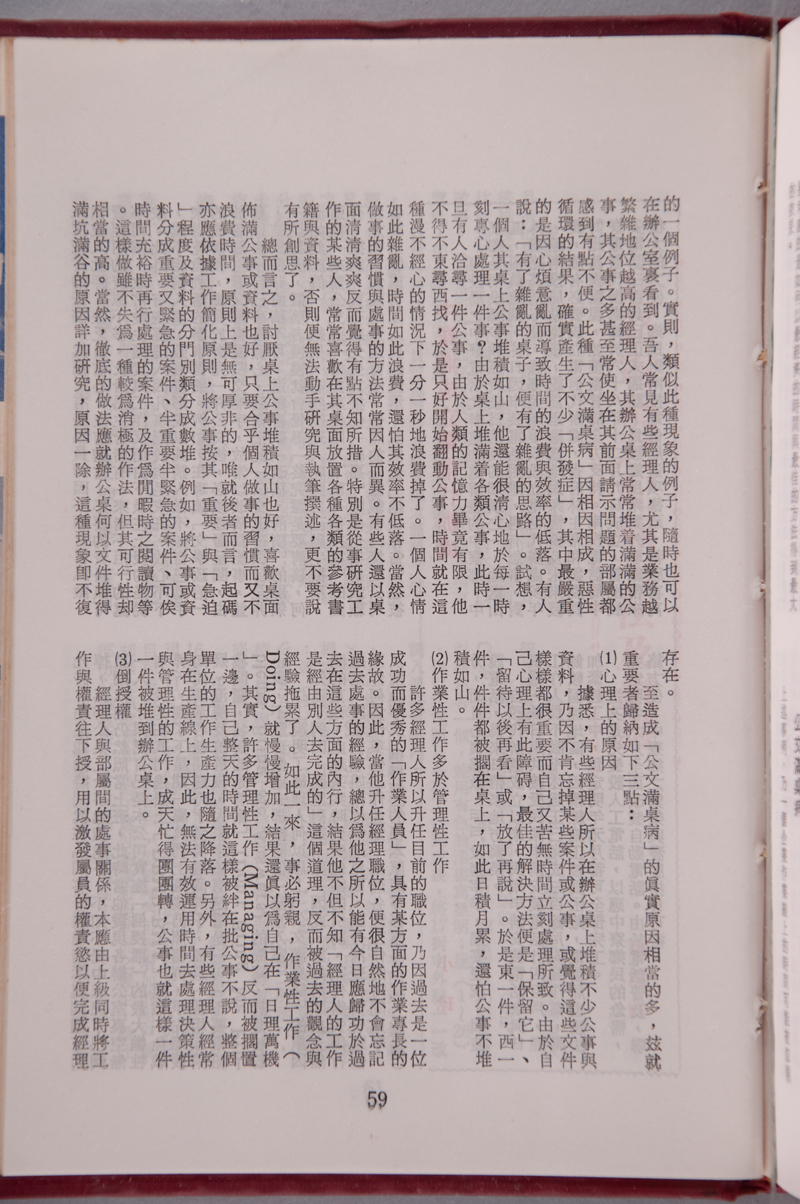 的一個例子。實則，類似此種現象的例子，隨時也可以
在辦公室裏看到。吾人常見有些經理人，尤其是業務越
繁雜地位越高的經理人，其辦公桌上常常堆着滿滿的公
事，其公事之多甚至常使坐在其前面請示問題的部屬都
感到有點不便。此種「公文滿桌病」因相因相成，惡性
循環的結果，確實產生了不少「併發症」，其中最嚴重
的是因心煩意亂而導致時間的浪費與效率的低落。有人
說：「有了雜亂的桌子，便有了雜亂的思路」。試想，
一個人其桌上公事堆積如山，他還能很清心地於每一時
刻專心處理一件事？由於桌上堆滿着各類公事，此時一
旦有人洽尋一件公事，由於人類的記憶力畢竟有限，他
不得不東尋西找，於是只好開始翻動公事，時間就在這
種漫不經心的情況下一分一秒地浪費掉了。一個人心情
如此雜亂，時間如此浪費，還怕其效率不低落。當然，
做事的習慣與處事的方法常常因人而異。有些人還以桌
面清清爽爽反而覺得有點不知所措。特別是從事研究工
作的某些人，常常喜歡在其桌面放置各種各類的參考書
籍與資料，否則便無法動手研究與執筆撰述，更不要說
有所創思了。
總而言之，討厭桌上公事堆積如山也好，喜歡桌面
佈滿公事或資料也好，只要合乎個人做事的習慣而又不
浪費時間，原則上是無可厚非的，唯就後者而言，起碼
亦應依據工作簡化原則，將公事按其「重要」與「急迫
」程度及資料的分門別類分成數堆。例如，將公事或資
料分成重要又緊急的案件、半重要半緊急的案件、可俟
時間充裕時再行處理的案件，及作爲閒暇時之閱讀物等
。這樣做雖不失爲一種較爲消極的作法，但其可行性却
相當的高。當然，徹底的做法應就辦公桌何以文件堆得
滿坑滿谷的原因詳加研究，原因一除，這種現象卽不復
存在。
至造成「公文滿桌病」的眞實原因相當的多，玆就
重要者歸納如下三點：
⑴心理上的原因
據悉，有些經理人所以在辦公桌上堆積不少公事與
資料，乃因不肯忘掉某些案件或公事，或覺得這些文件
樣樣都很重要而自己又苦無時間立刻處理所致。由於自
己心理上有此障碍，最佳的解決方法便是「保留它」、
「留待以後再看」或「放了再說」。於是東一件，西一
件，件件都被擱在桌上，如此日積月累，還怕公事不堆
積如山。
⑵作業性工作多於管理性工作
許多經理人所以升任目前的職位，乃因過去是一位
成功而優秀的「作業人員」，具有某方面的作業專長的
緣故。因此，當他升任經理職位，便很自然地不會忘記
過去處事的經驗，總以爲他之所以能有今日應歸功於過
去在這些方面的內行，結果他不但不知「經理人的工作
是經由別人去完成的」這個道理，反而被過去的觀念與
經驗拖累了。如此一來，事必躬親，作業性工作（
Doing) 就慢慢增加，結果還眞以爲自己在「日理萬機
」。其實，許多管理性工作 (Managing) 反而被擱置
一邊，自己整天的時間就這樣被絆在批公事不說，整個
單位的工作生產力也隨之降落。另外，有些經理人經常
身在生產線上，因此，無法有效運用時間去處理決策性
與管理性的工作，成天忙得團團轉，公事也就這樣一件
一件被堆到辦公桌上。
⑶倒授權
經理人與部屬間的處事關係，本應由上級同時將工
作與權責往下授，用以激發屬員的權責慾以便完成經理
59